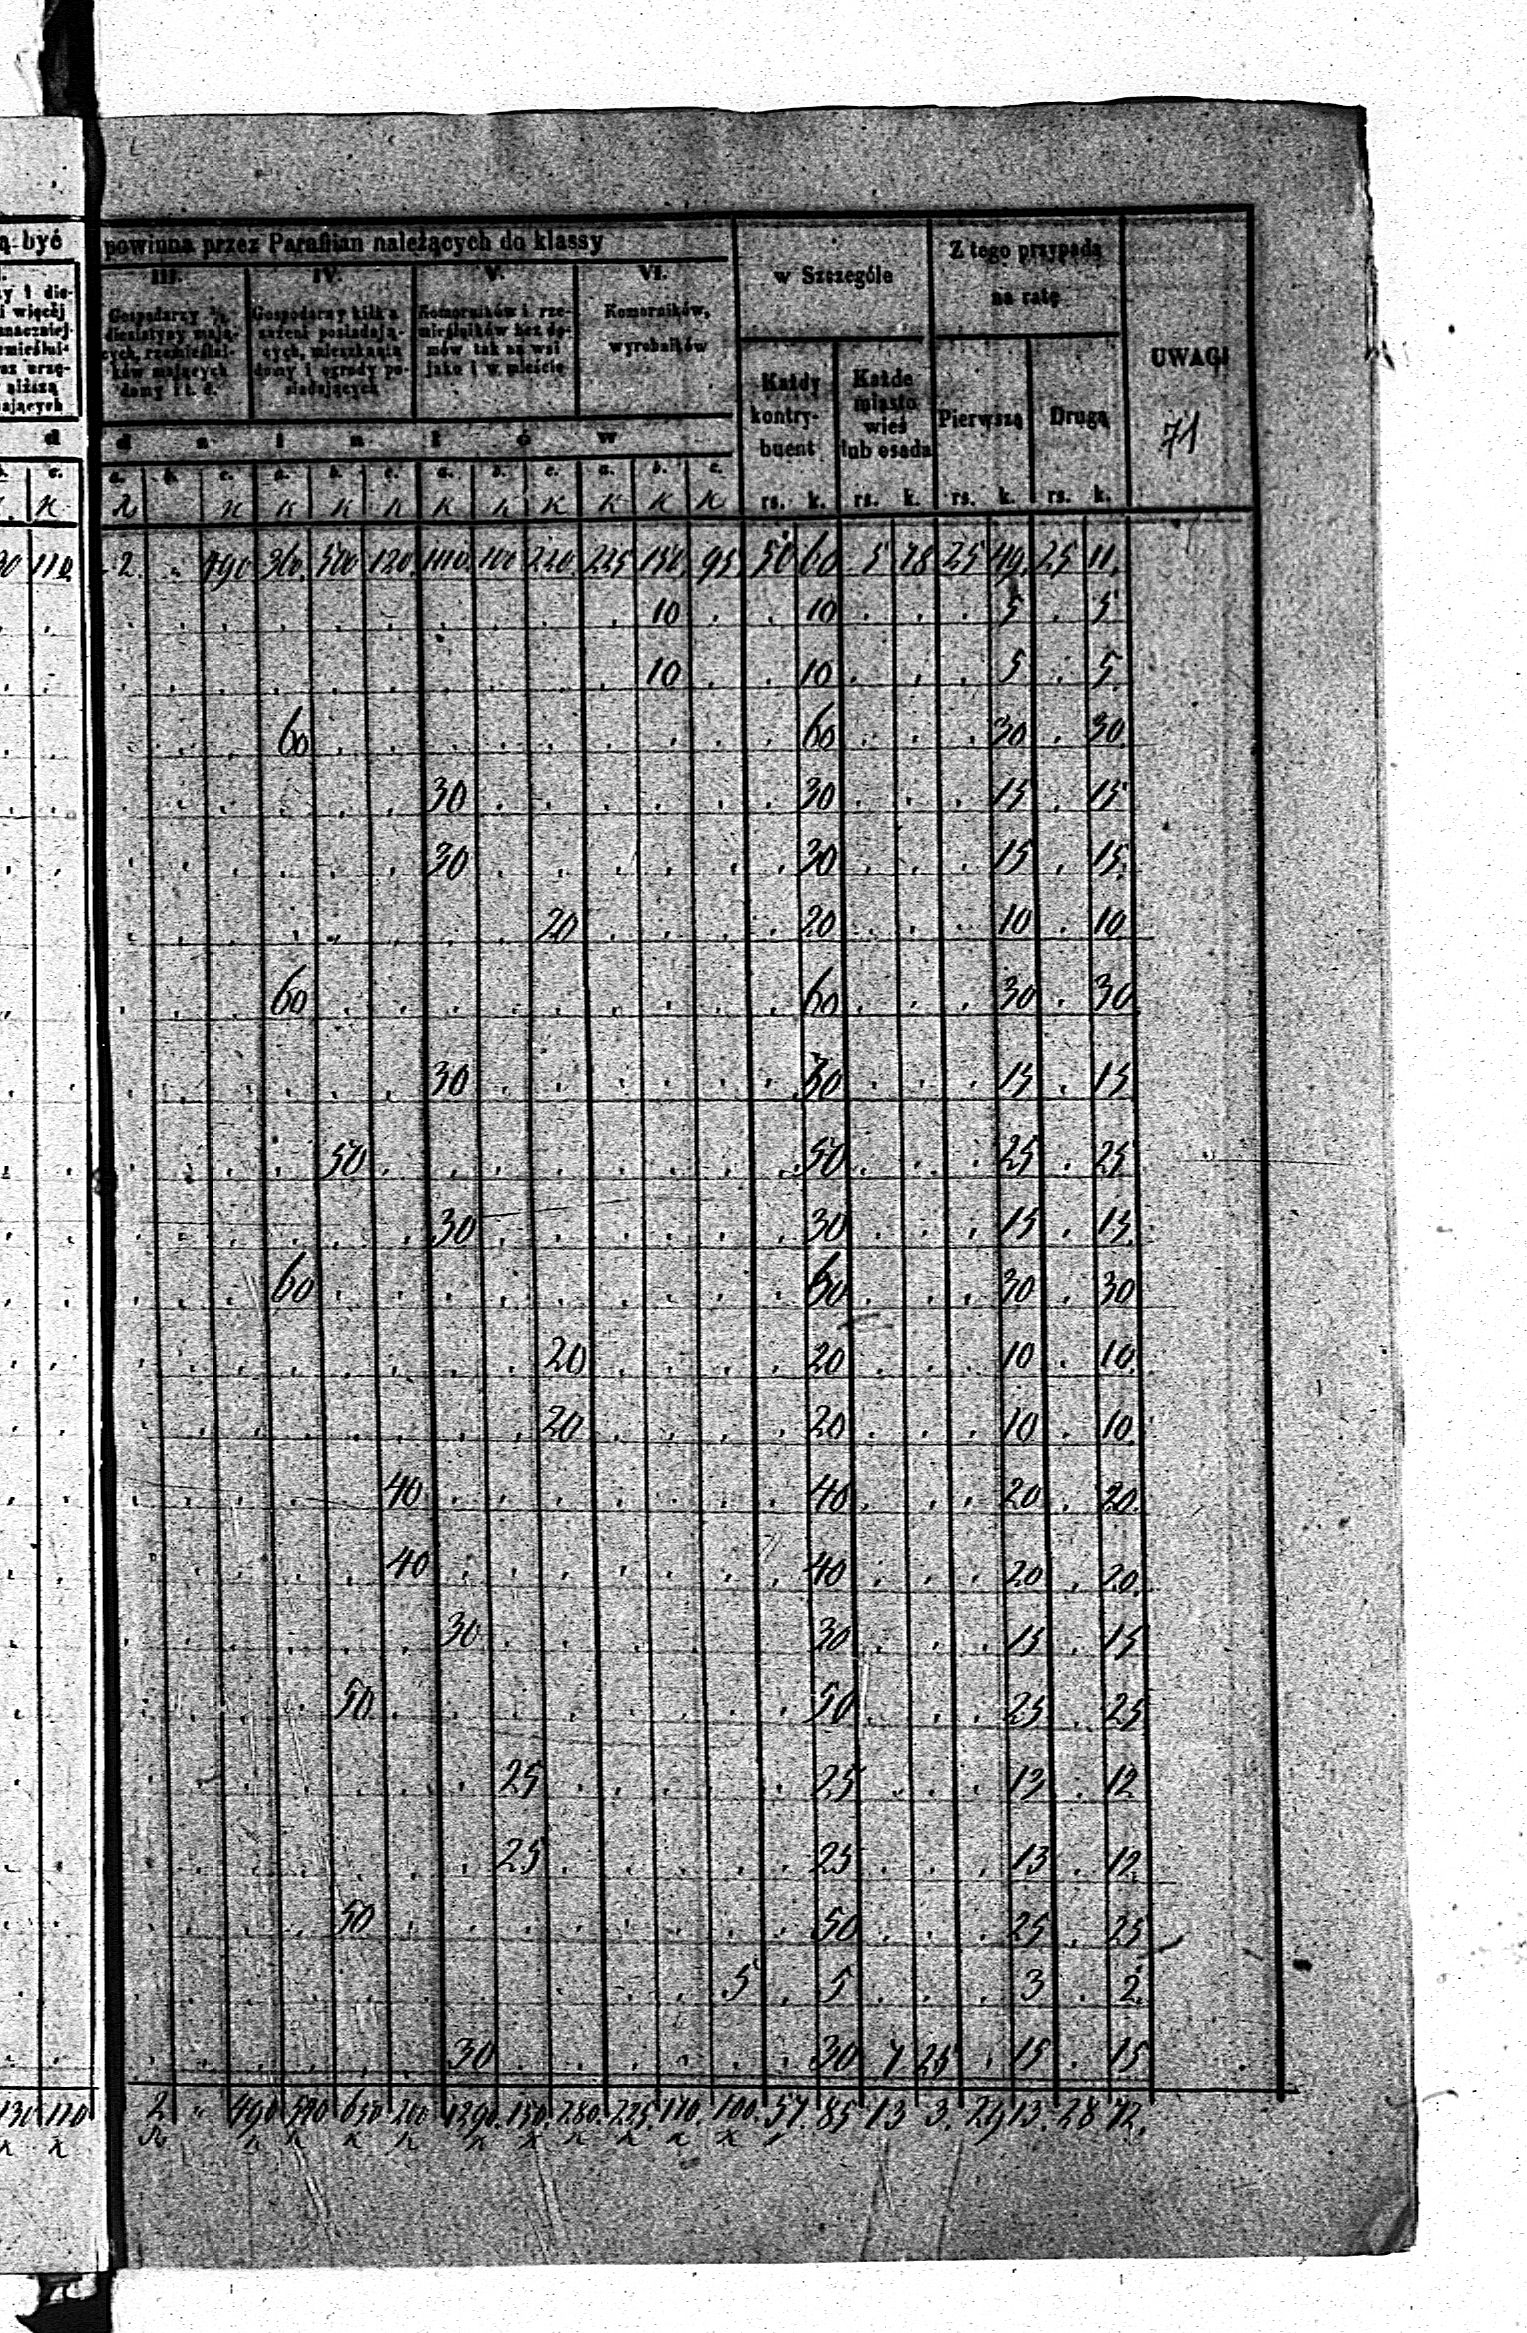 ą być powinna przez Parafian należących do klassy
w Szczególe
Z tego przypada na ratę
UWAGI
III. IV. V. VI.
Gospodarzy ½ dziesiatyny mających, rzemieślników mających domy i t. d.
Gospodarzy kilka sążeni posiadających, mieszkania domy i ogrody posiadających
Komorników i rzemieślników bez domów tak na wsi jako i w mieście
Komorników, wyrobników
Każdy kontrybuent
Każde miasto wieś lub osada
Pierwszą
Drugą
71
d d z i a ł ó w
c. a. b. c. a. b. c. a. b. c. a. b. c.
rs. k. rs. k. rs. k. rs. k.
110 2 490 360 500 120 1110 100 220 225 150 95 50 60 5 78 25 49 25 11
10 10 5 5
10 10 5 5
60 60 30 30
30 30 15 15
30 30 15 15
20 20 10 10
60 60 30 30
30 30 15 15
50 50 25 25
30 30 15 15
60 60 30 30
20 20 10 10
20 20 10 10
40 40 20 20
40 40 20 20
30 30 15 15
50 50 25 25
25 25 13 12
25 25 13 12
50 50 25 25
5 5 3 2
30 30 7 25 15 15
130 110 2 490 540 650 200 1290 150 280 225 170 100 57 85 13 3 29 13 28 72